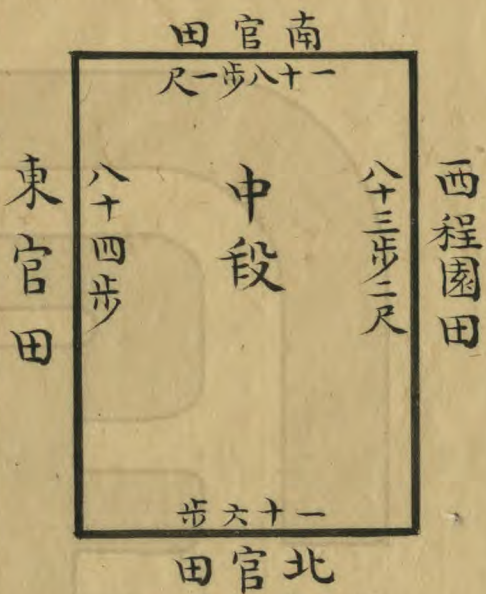 南官田
一十八步一尺
西程園田
八十三步二尺
中段
八十四步
東官田
一十六步
北官田